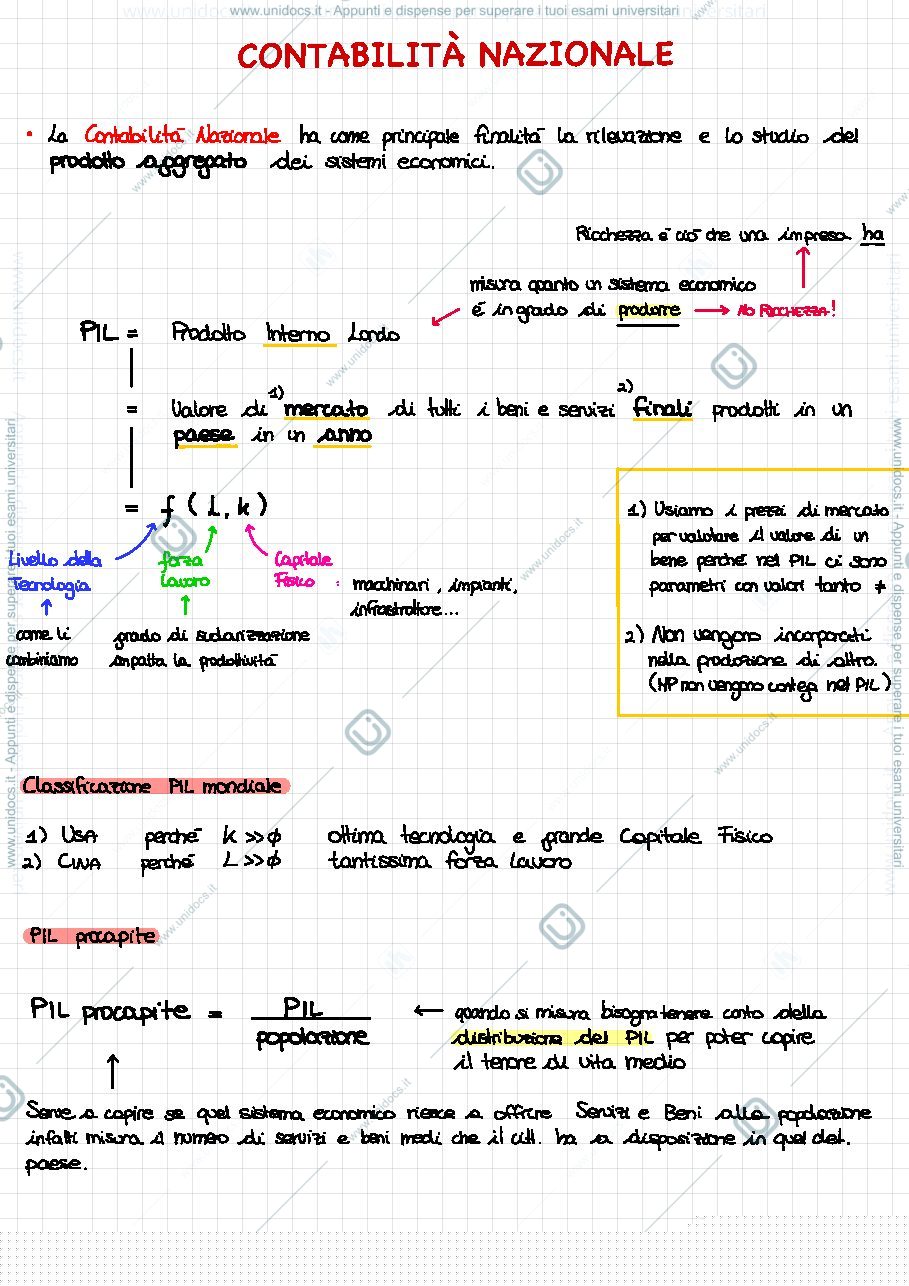 www.unidocs.it - Appunti e dispense per superare i tuoi esami universitari
CONTABILITÀ NAZIONALE
• La Contabilità Nazionale ha come principale finalità la rilevazione e lo studio del
prodotto aggregato dei sistemi economici.
Ricchezza è ciò che una impresa ha
misura quanto un sistema economico
è in grado di produrre → NO RICCHEZZA!
PIL = Prodotto Interno Lordo
1) 2)
= Valore di mercato di tutti i beni e servizi finali prodotti in un
paese in un anno
= f (L, K)
Livello della
Tecnologia
forza
lavoro
Capitale
Fisico : macchinari, impianti,
infrastrutture...
come li
combiniamo
grado di scolarizzazione
impatta la produttività
1) Usiamo i prezzi di mercato
per valutare il valore di un
bene perché nel PIL ci sono
parametri con valori tanto ≠
2) Non vengono incorporati
nella produzione di altro.
(MP non vengono conteg. nel PIL)
Classificazione PIL mondiale
1) USA perché K >> ∅ ottima tecnologia e grande Capitale Fisico
2) CINA perché L >> ∅ tantissima forza lavoro
PIL procapite
PIL procapite = PIL
popolazione
← quando si misura bisogna tenere conto della
distribuzione del PIL per poter capire
il tenore di vita medio
Serve a capire se quel sistema economico riesce a offrire Servizi e Beni alla popolazione
infatti misura il numero di servizi e beni medi che il citt. ha a disposizione in quel det.
paese.
www.unidocs.it - Appunti e dispense per superare i tuoi esami universitari
www.unidocs.it - Appunti e dispense per superare i tuoi esami universitari